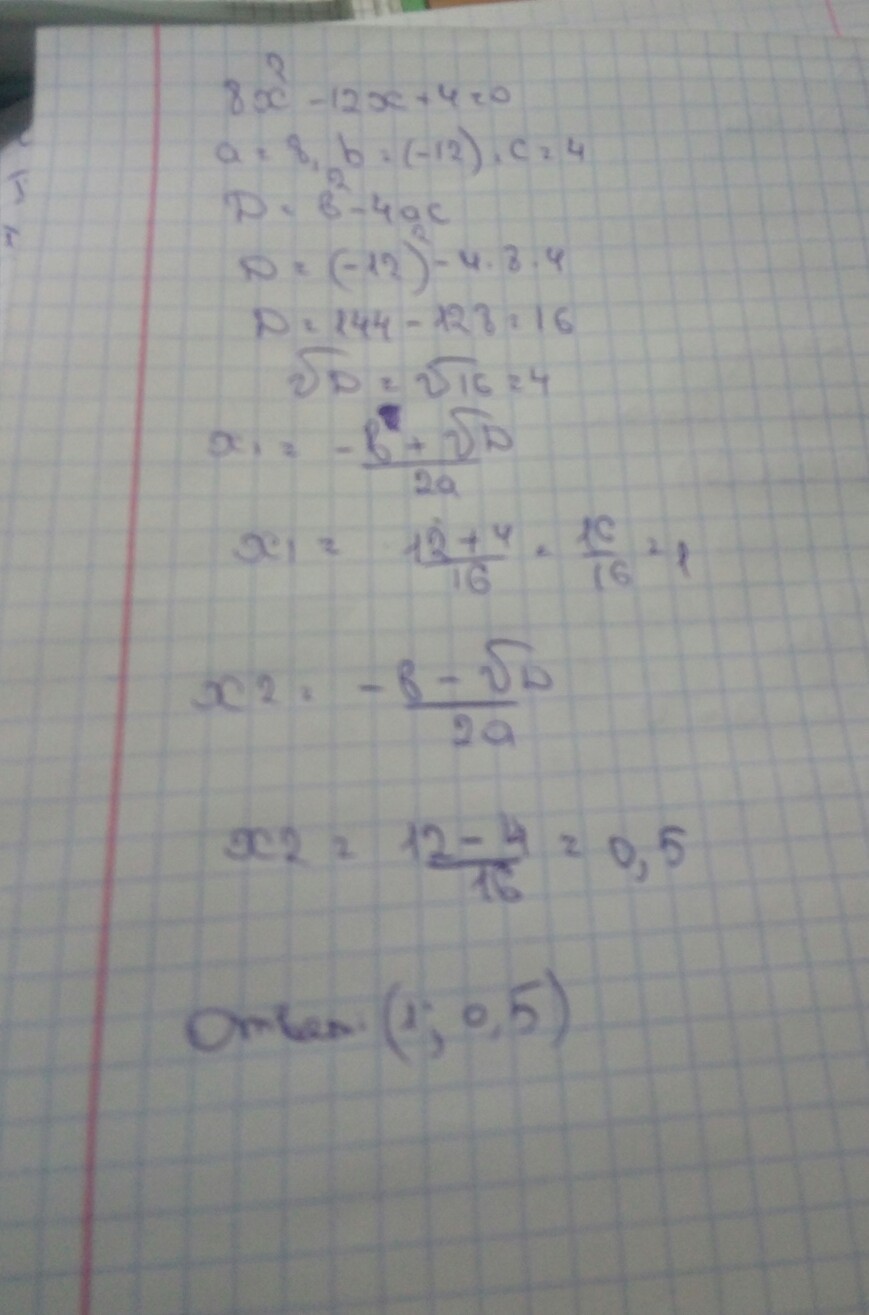 8x² - 12x + 4 = 0
a = 8, b = (-12), c = 4
D = b² - 4ac
D = (-12)² - 4 · 8 · 4
D = 144 - 128 = 16
√D = √16 = 4
x₁ = (-b + √D)/2a
x₁ = (12 + 4)/16 = 16/16 = 1
x2 = (-b - √D)/2a
x2 = (12 - 4)/16 = 0,5
Ответ: (1; 0,5)